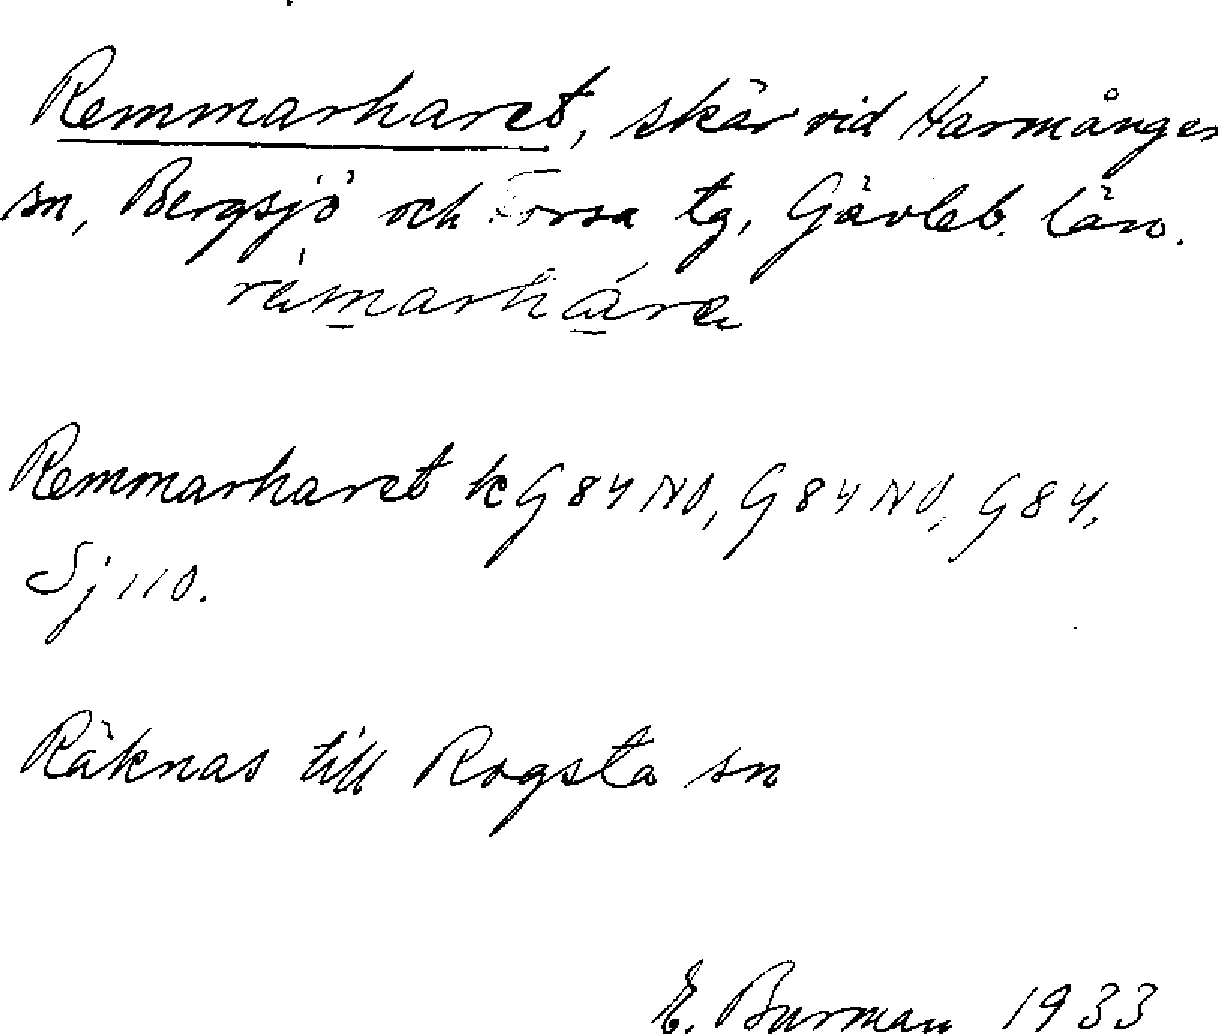 Remmarharet, skär vid Harmånger
sn, Bergsjö och Forsa tg, Gävleb. län.
Remmarharet k G 84 NO, G 84 NO, G 84,
Sj 110.
Räknas till Rogsta sn
E. Burman 1933